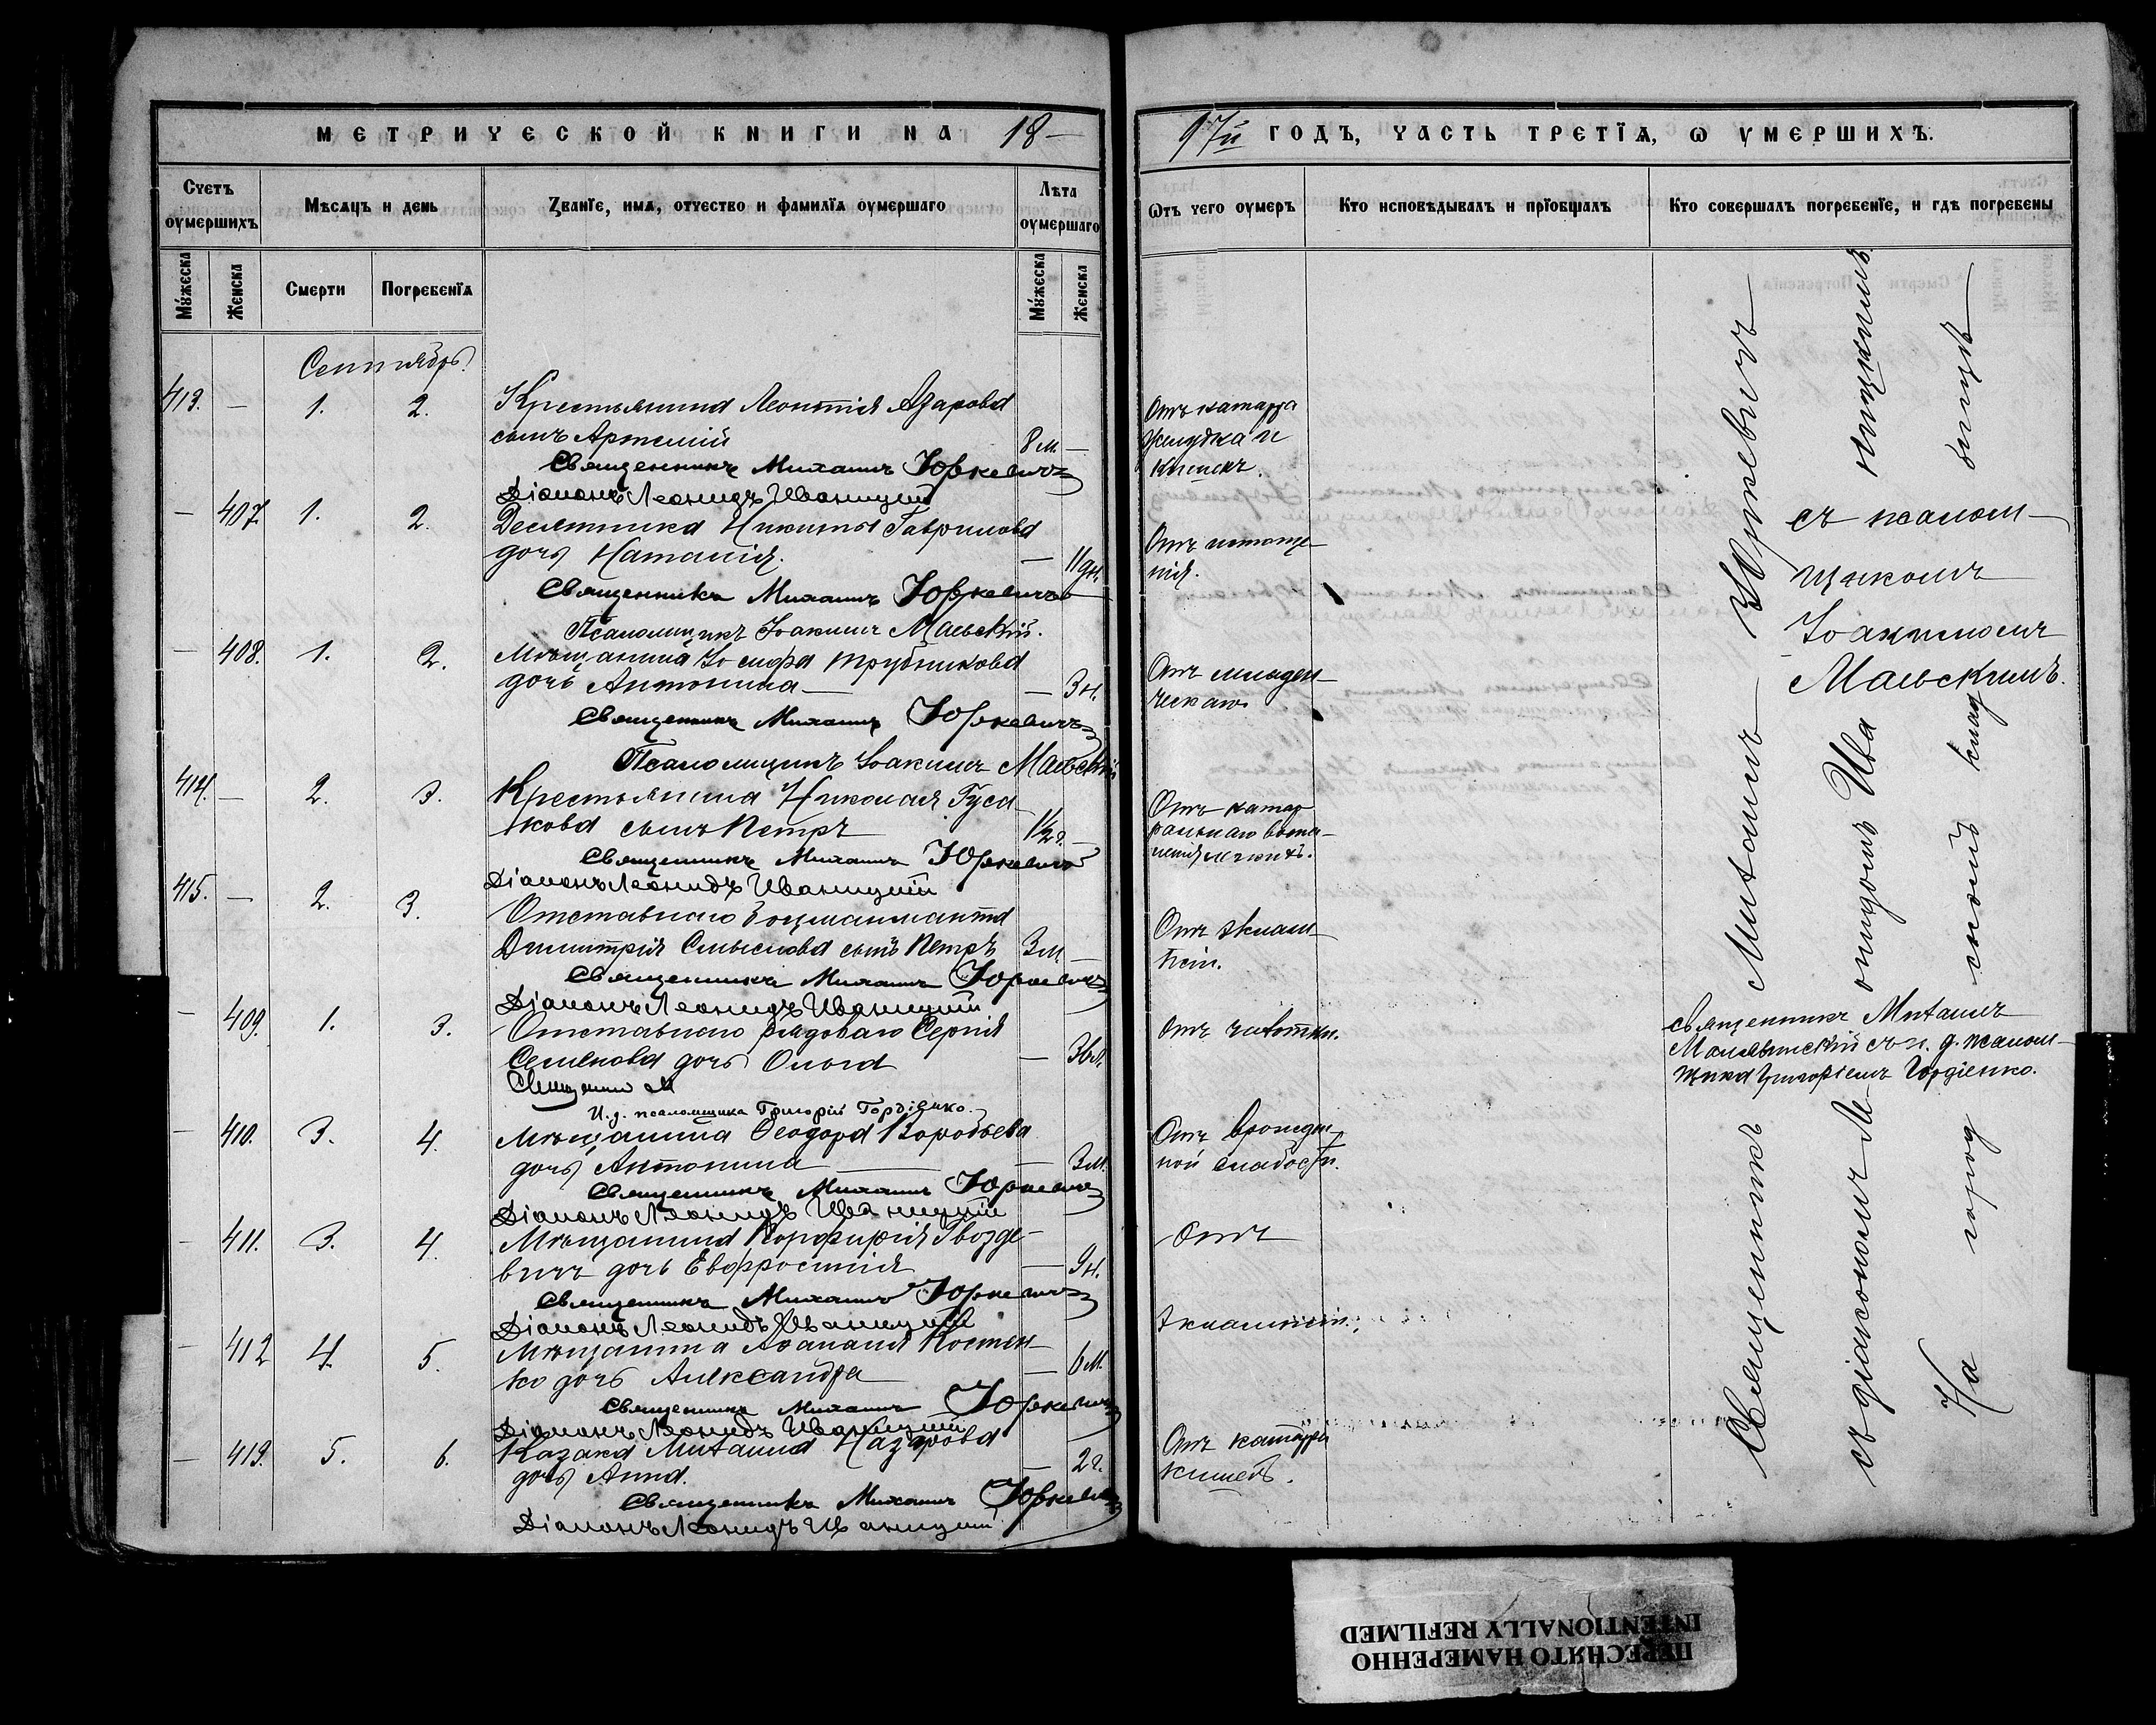 МЕТРИЧЕСКОЙ КНИГИ НА 18—
97й ГОДЪ, ЧАСТЬ ТРЕТЇѦ, Ѡ УМЕРШИХЪ.
Счетъ оумершихъ
Мѣсяцъ и день
Званїе, имѧ, отчество и фамилїѧ оумершаго
Лѣта оумершаго
Ѿтъ чего оумеръ
Кто исповѣдывалъ и прїобщалъ
Кто совершалъ погребенїе, и гдѣ погребены
Мужеска
Женска
Смерти
Погребенїѧ
Мужеска
Женска
Сентябрь.
413. — 1. 2. Крестьянина Леонтія Азарова
сынъ Артемій 8 м. —
Отъ катарра
желудка и
кишекъ.
Священникъ Михаилъ Юркевичъ
Діаконъ Леонидъ Иваницкій
— 407. 1. 2. Десятника Никиты Гаврилова
дочь Наталія. — 11 дн.
Отъ истоще-
нія.
Священникъ Михаилъ Юркевичъ
Псаломщикъ Іоакимъ Маевскій.
— 408. 1. 2. Мѣщанина Іосифа Трубникова
дочь Антонина — 3 н.
Отъ младен-
ческаго
Священникъ Михаилъ Юркевичъ
Псаломщикъ Іоакимъ Маевскій
414. — 2. 3. Крестьянина Николая Гуса-
кова сынъ Петръ 1½ г. —
Отъ катар
ральнаго воспа-
ленія легкихъ.
Священникъ Михаилъ Юркевичъ
Діаконъ Леонидъ Иваницкій
415. — 2. 3. Отставного боцманмата
Димитрія Смыслова сынъ Петръ 3 м. —
Отъ эклам-
псіи.
Священникъ Михаилъ Юркевичъ
Діаконъ Леонидъ Иваницкій
— 409. 1. 3. Отставного рядоваго Сергія
Семенова дочь Ольга —
Отъ чахотки.
И. д. псаломщика Григорій Гордіенко.
— 410. 3. 4. Мѣщанина Ѳеодора Воробьева
дочь Антонина — 3 м.
Отъ врожден-
ной слабости.
Священникъ Михаилъ Юркевичъ
Діаконъ Леонидъ Иваницкій
— 411. 3. 4. Мѣщанина Порфирія Гвозде-
вичъ дочь Евфросинія — 9 н.
Отъ
эклампсіи.
Священникъ Михаилъ Юркевичъ
Діаконъ Леонидъ Иваницкій
— 412 4. 5. Мѣщанина Аѳанасія Костен-
ко дочь Александра — 6 м.
Священникъ Михаилъ Юркевичъ
Діаконъ Леонидъ Иваницкій
— 413. 5. 6. Казака Михаила Назарова
дочь Анна. — 2 г.
Отъ катарра
кишекъ.
Священникъ Михаилъ Юркевичъ
Діаконъ Леонидъ Иваницкій
Священникъ Михаилъ Юркевичъ
съ діакономъ Леонидомъ Иваницкимъ
На городскомъ кладбищѣ
съ псалом-
щикомъ
Іоакимомъ
Маевскимъ.
священникъ Михаилъ
съ и. д. псалом-
щика Григоріемъ Гордіенко.
ПЕРЕСНЯТО НАМЕРЕННО
INTENTIONALLY REFILMED